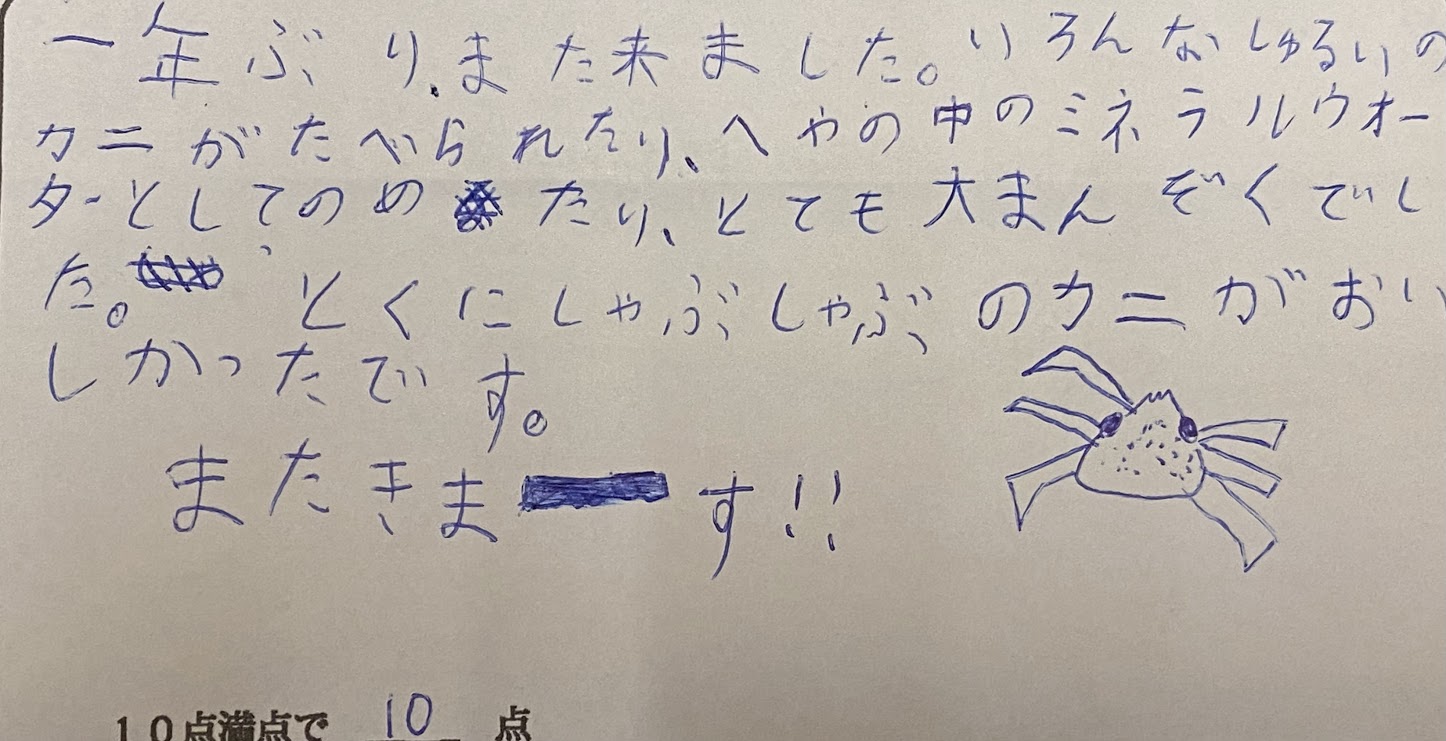 一年ぶり、また来ました。いろんなしゅるいの
カニがたべられたり、へやの中のミネラルウオー
ターとしてのめたり、とても大まんぞくでし
た。とくにしゃぶしゃぶのカニがおい
しかったです。
またきまーす!!
10点満点で 10 点